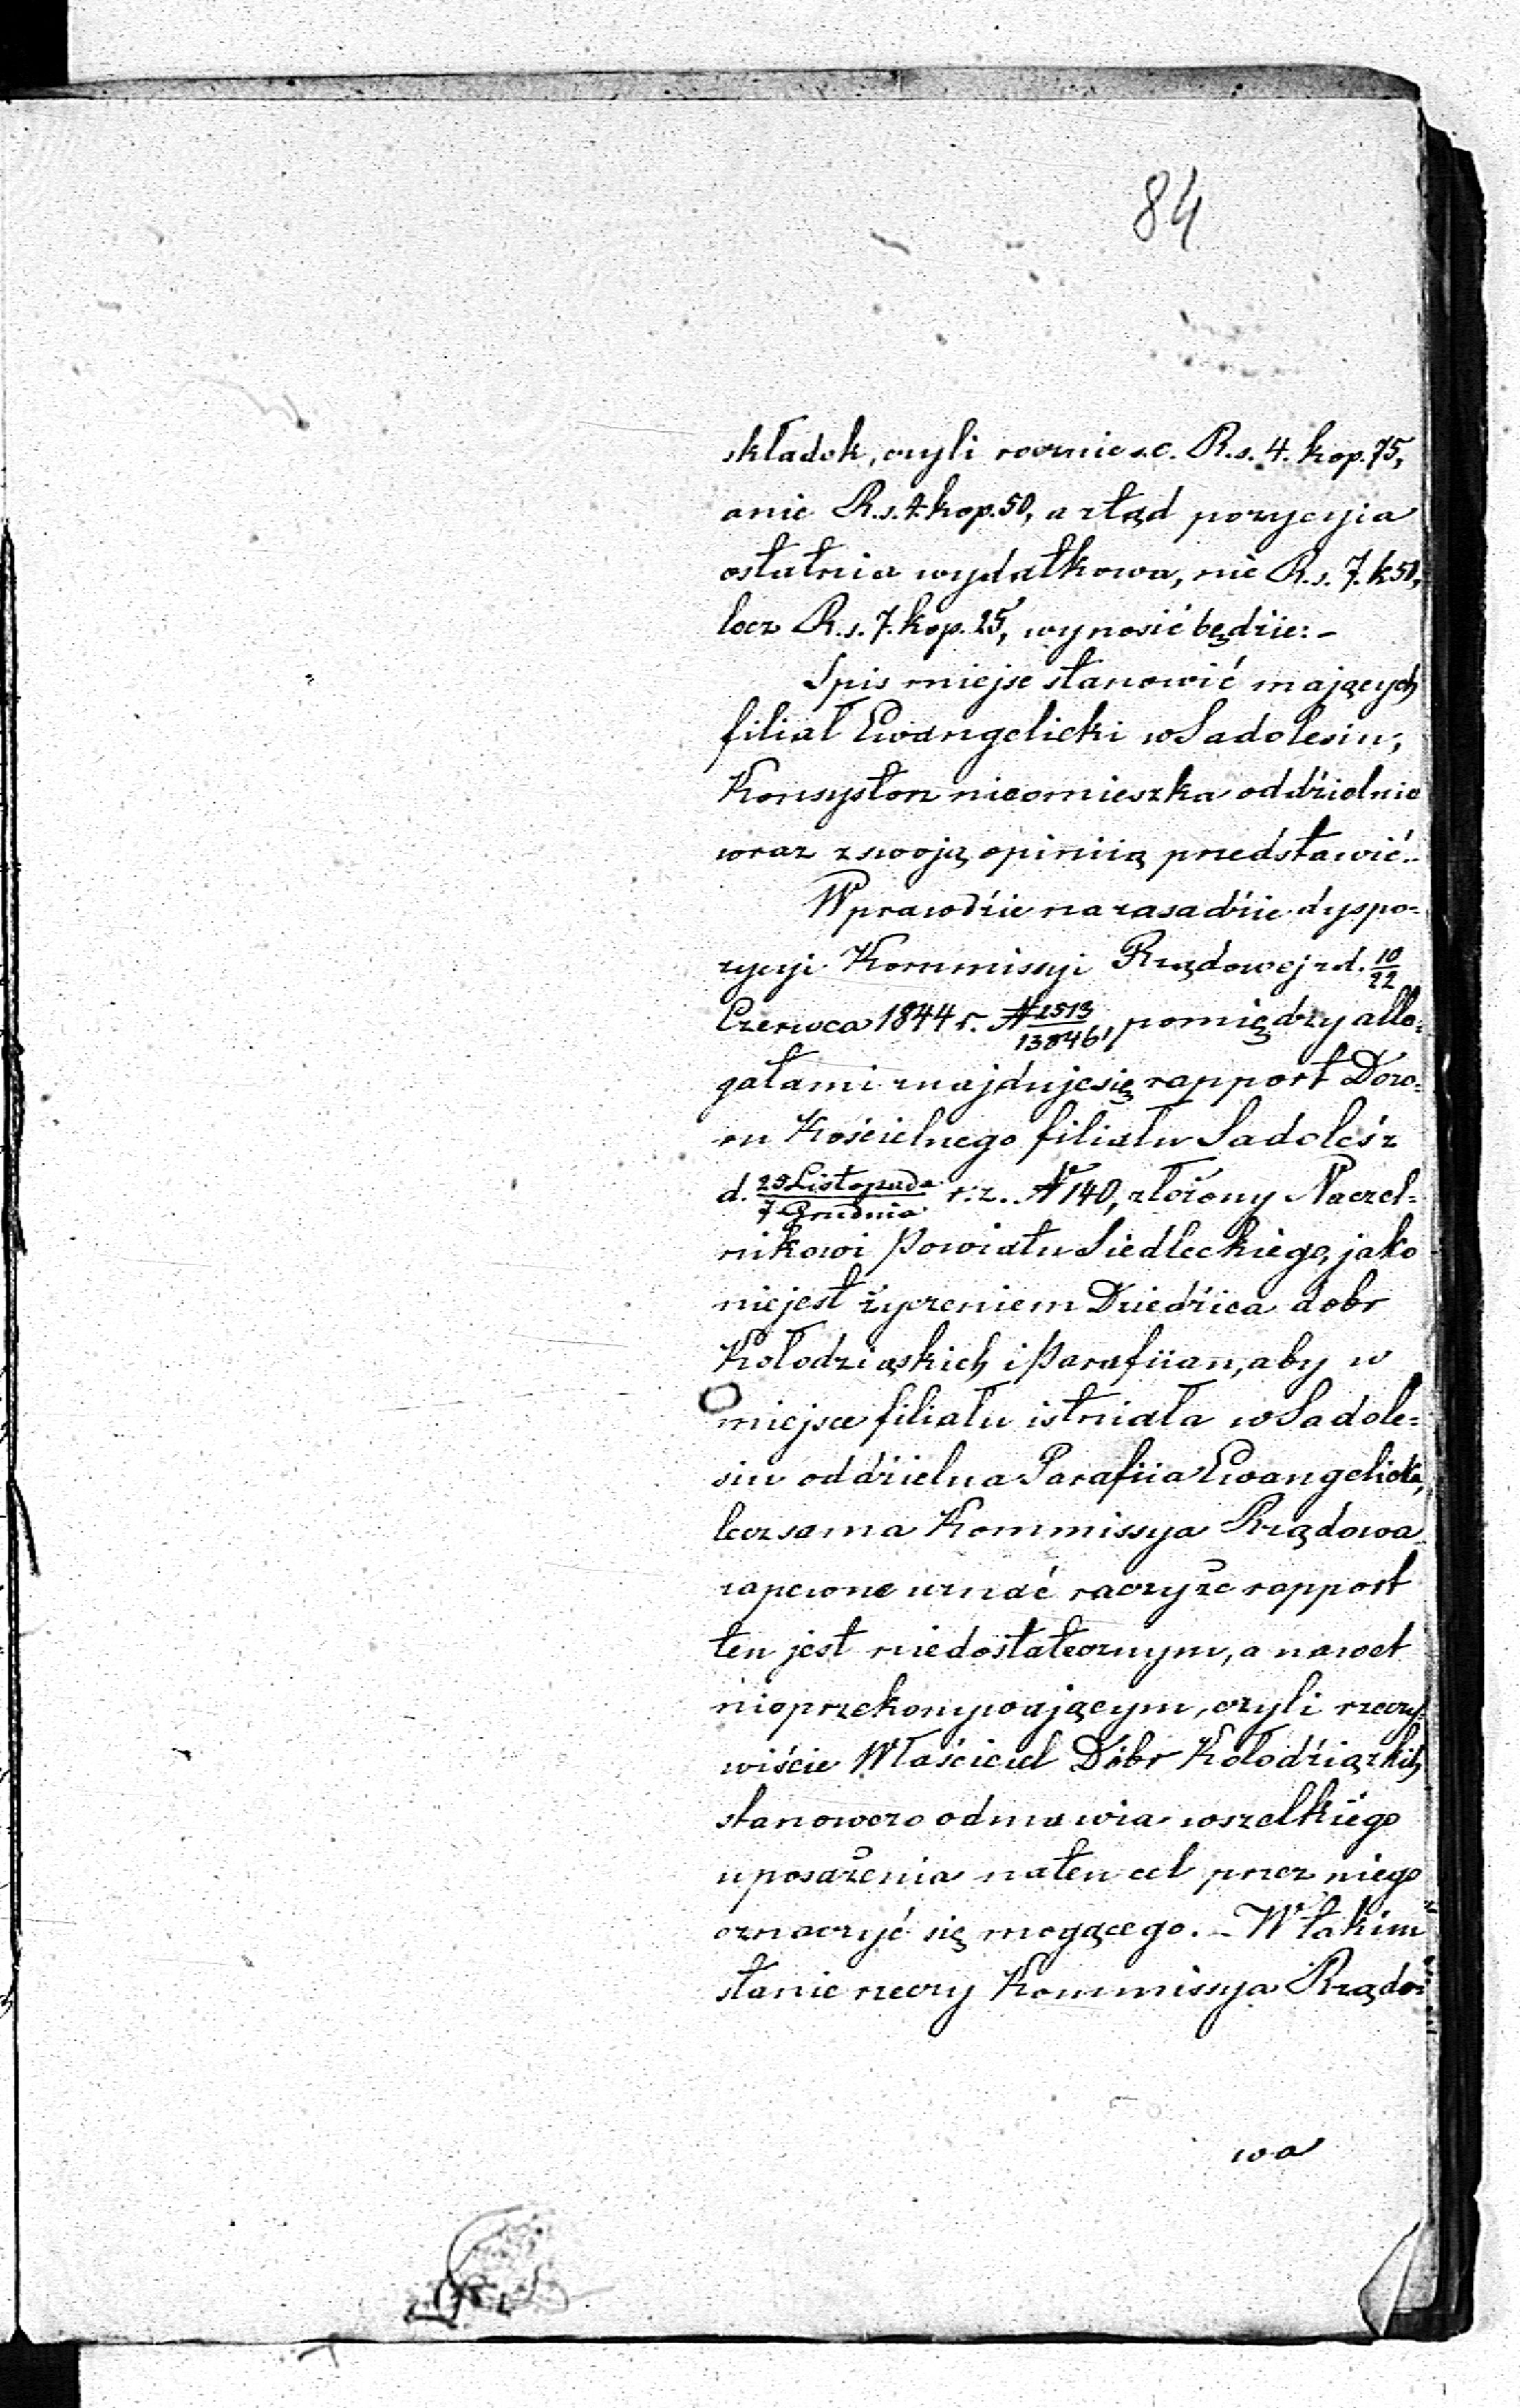 84
składok, czyli rocznie s.c. R.s. 4. kop. 75,
anie R.s. 4. kop. 50, a ztąd pozycyia
ostatnia wydatkowa, nie R.s. 7. k 50,
lecz R.s. 7. kop. 25, wynosić będzie: -
Spis miejsc stanowić mających
filiał Ewangelicki w Sadolesiu,
Konsystorz nieomieszka oddzielnie
wraz z swoją opiniią przedstawić.
Wprawdzie na zasadzie dyspo=
zycyi Kommissyi Rządowej z d. 10/22
Czerwca 1844 r. N 2513/13846, pomiędzy alle=
gatami znajduje się rapport Dozo=
ru Kościelnego filiału Sadoleś z
d. 25 Listopada/7 Grudnia r. z. N 140, złożony Naczel=
nikowi Powiatu Siedleckiego, jako
nie jest życzeniem Dziedzica dobr
Kołodziąskich i Parafiian, aby w
miejsce filiału istniała w Sadole=
siu oddzielna Parafiia Ewangelicka,
lecz sama Kommissya Rządowa
zapewne uznać raczy że rapport
ten jest niedostatecznym, a nawet
nieprzekonywającym, czyli rzeczy=
wiście Właściciel Dóbr Kołodziązkich
stanowczo odmawia wszelkiego
uposażenia na ten cel przez niego
oznaczyć się mogącego. - W takim
stanie rzeczy Kommissya Rządo=
wa